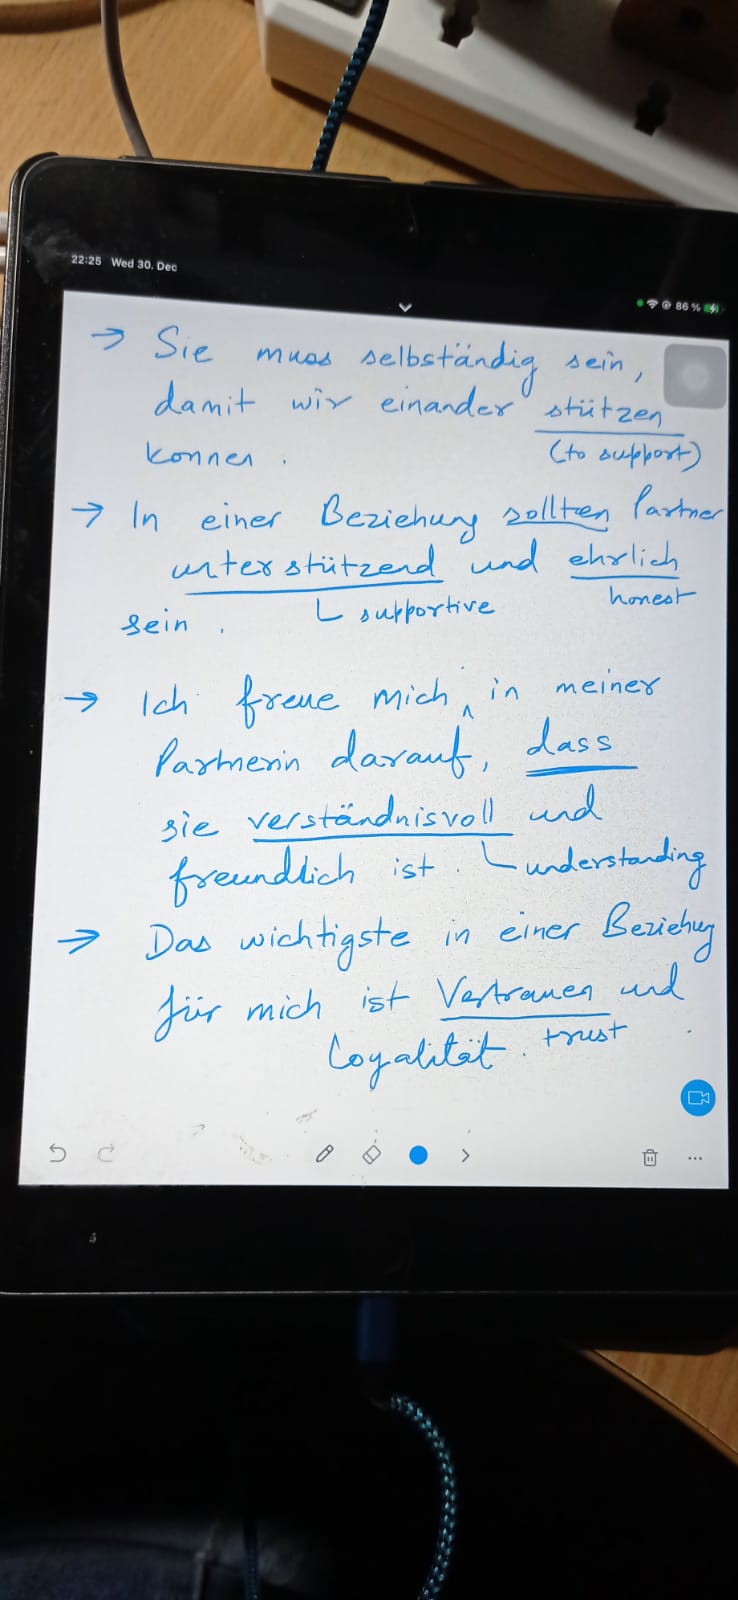 22:25 Wed 30. Dec
86 %
→ Sie muss selbständig sein,
damit wir einander stützen
konnen. (to support)
→ In einer Beziehung sollten Partner
unterstützend und ehrlich
sein. supportive honest
→ Ich freue mich ^ in meiner
Partnerin darauf, dass
sie verständnisvoll und
freundlich ist. understanding
→ Das wichtigste in einer Beziehung
für mich ist Vertrauen und
Loyalität. trust